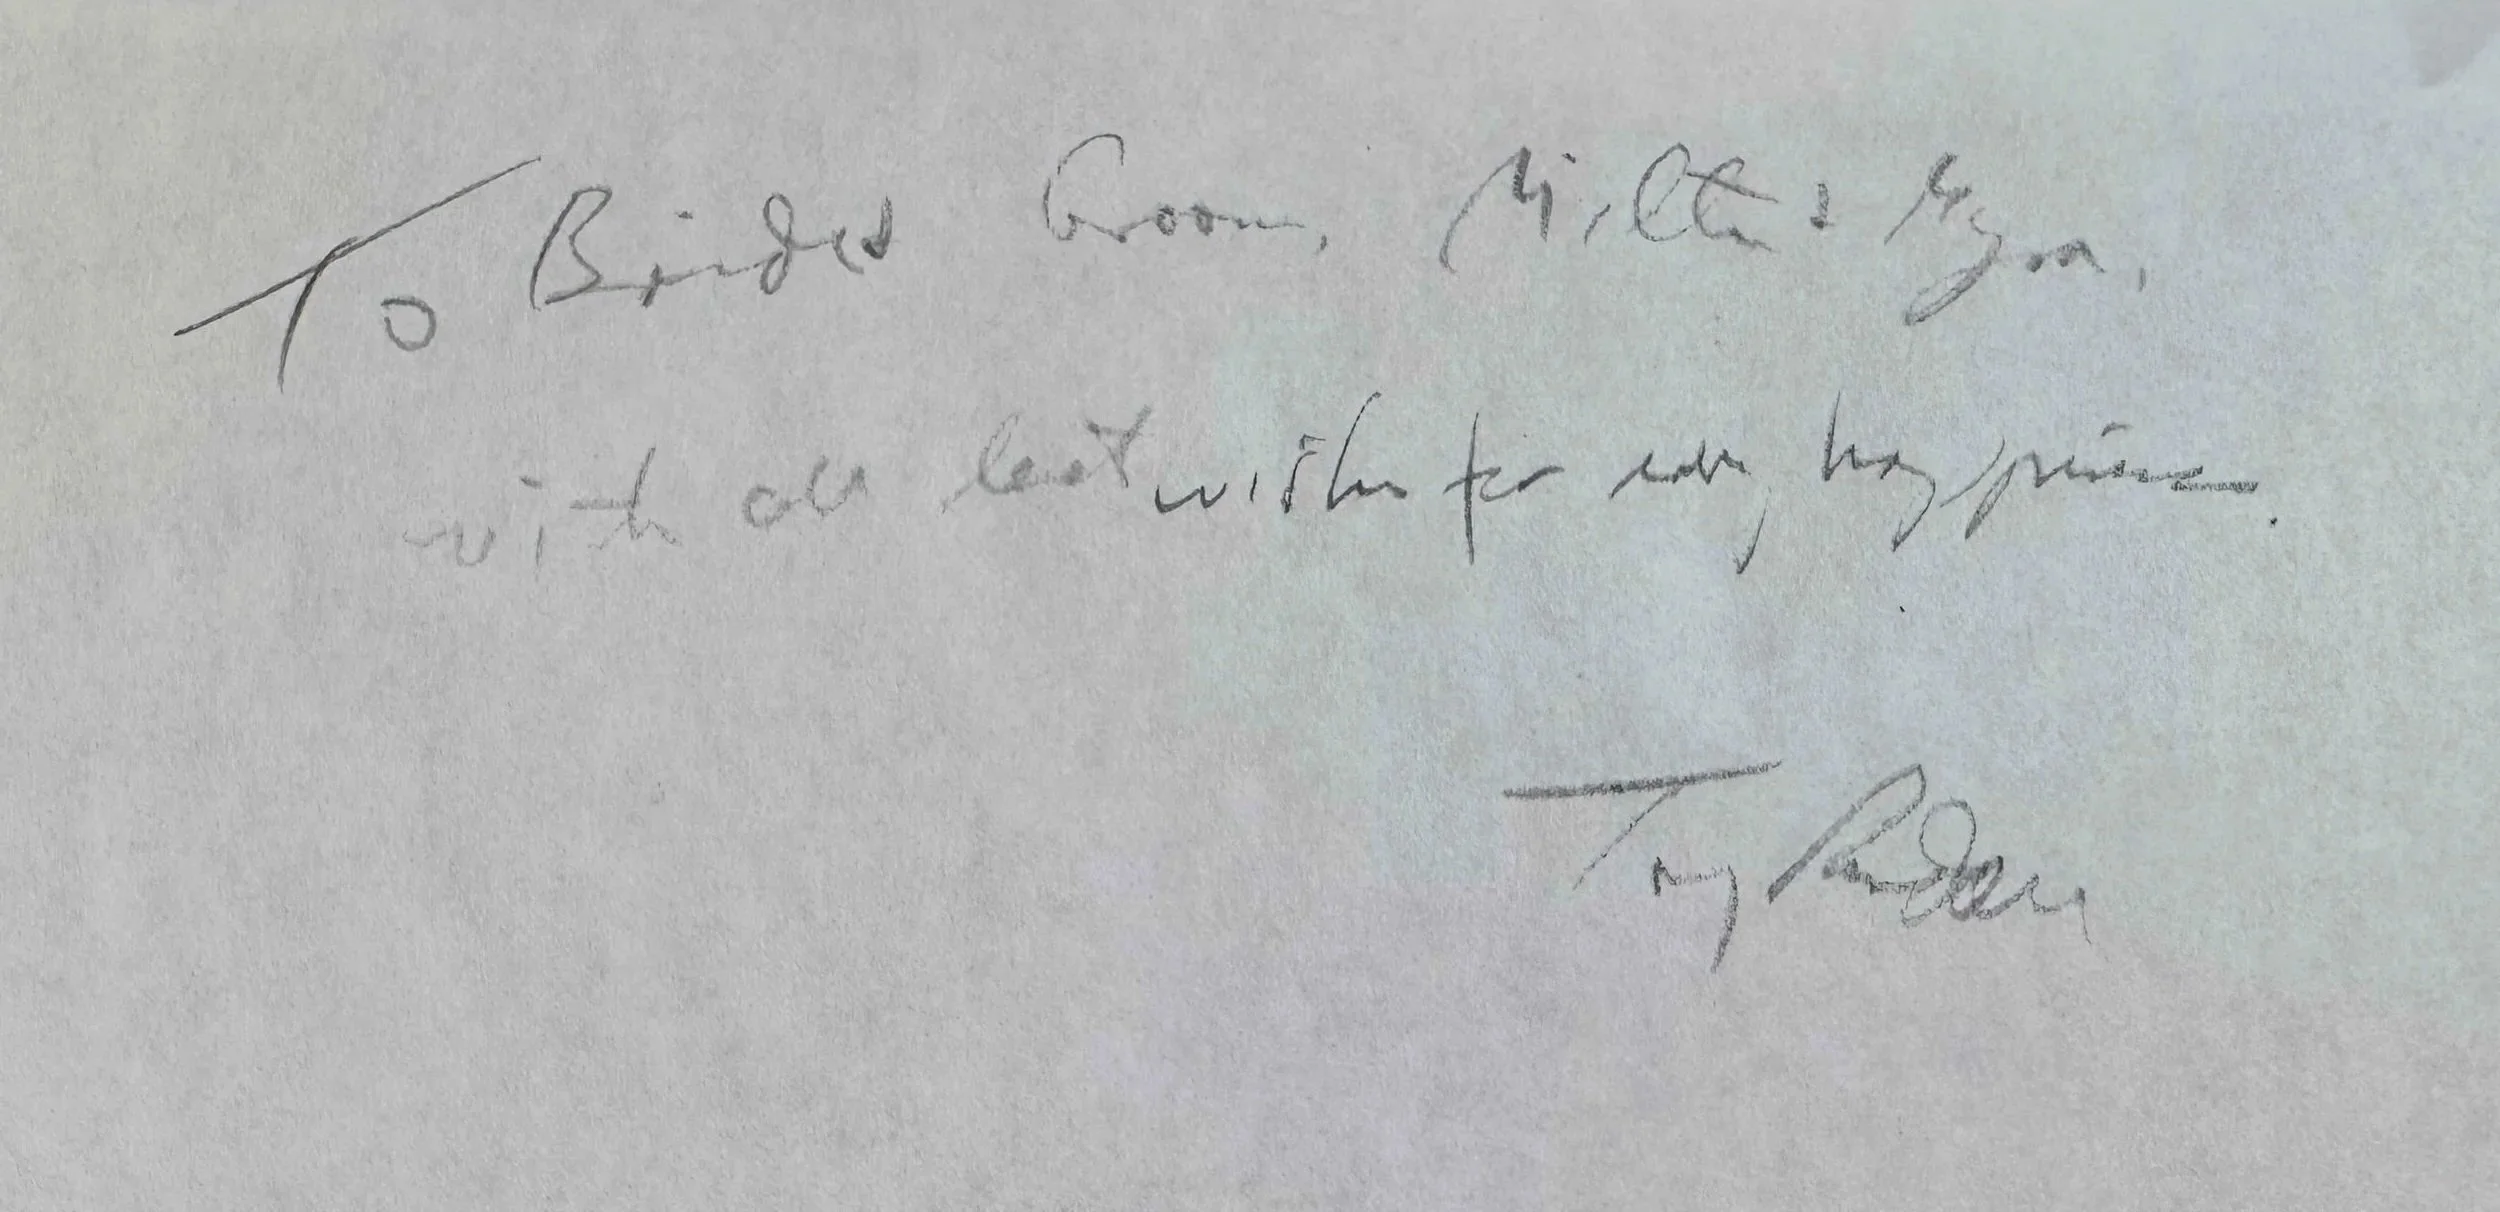 To Bride & Groom, Milton & Myra,
with all best wishes for every happiness.
Tony